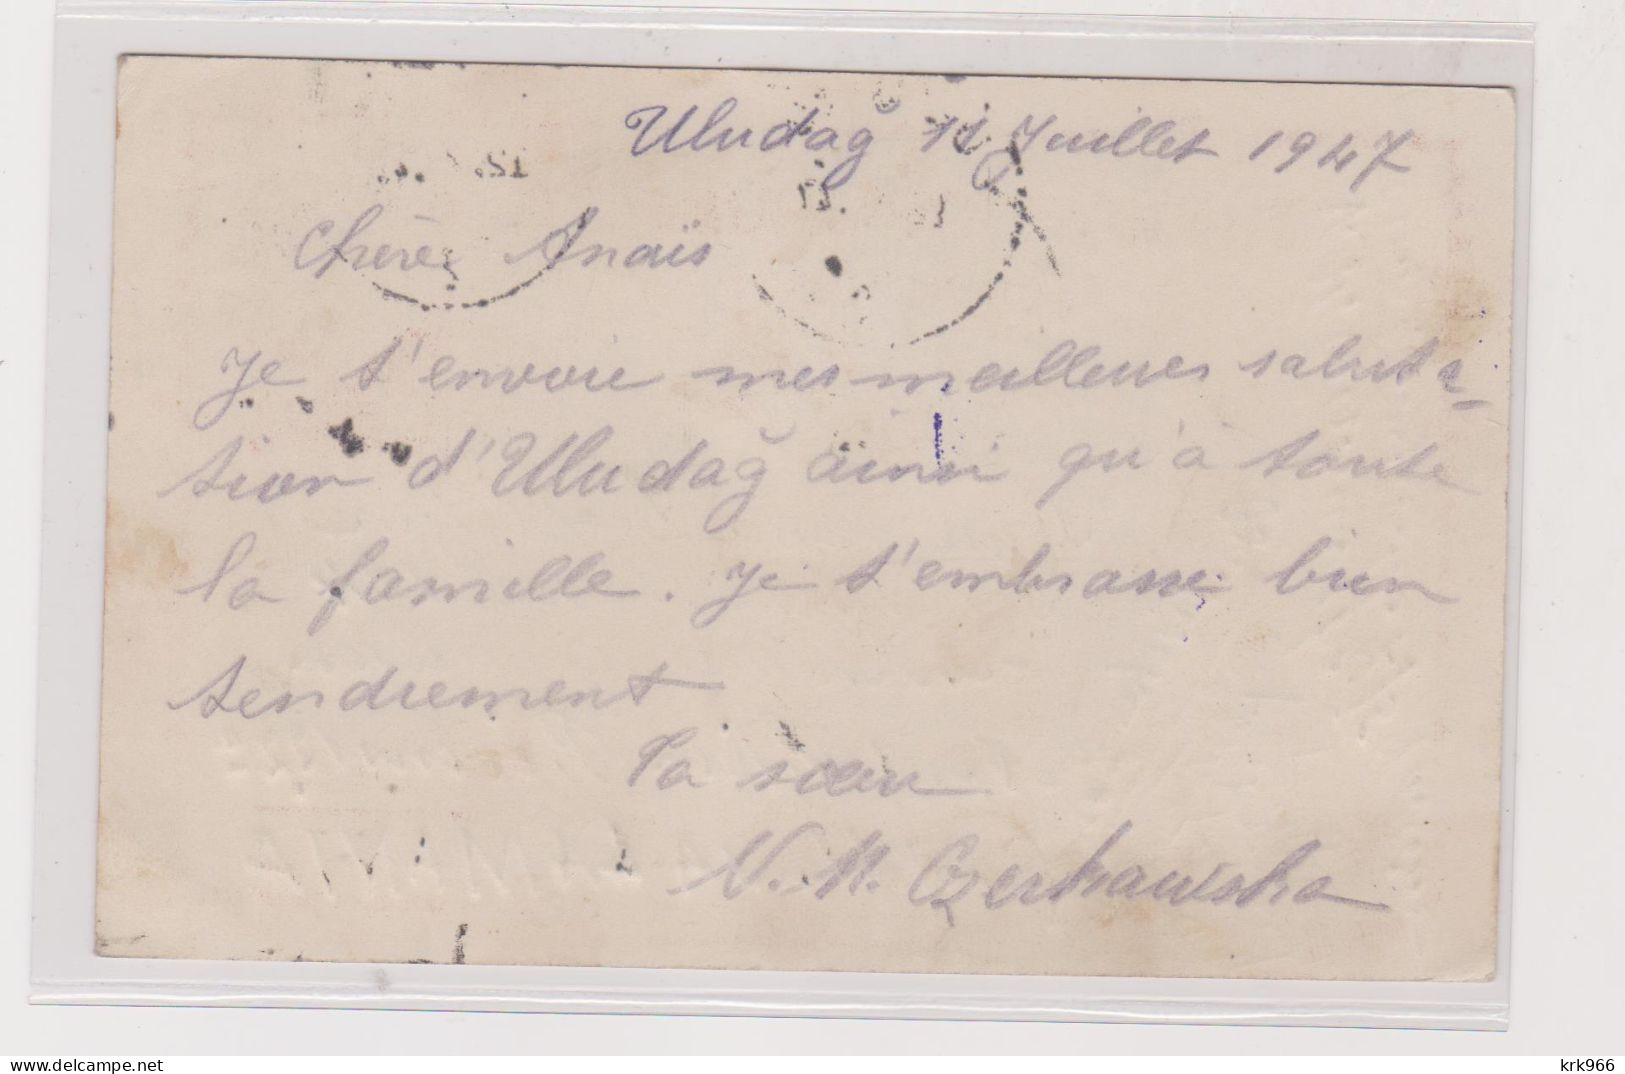 Uludağ 11 Juillet 1947
Chère Anaïs
Je t'envoie mes meilleures saluta-
tion d'Uludağ ainsi qu'à toute
la famille. Je t'embrasse bien
tendrement
Ta sœur
Czerkawska
12.
krk966
www.delcampe.net